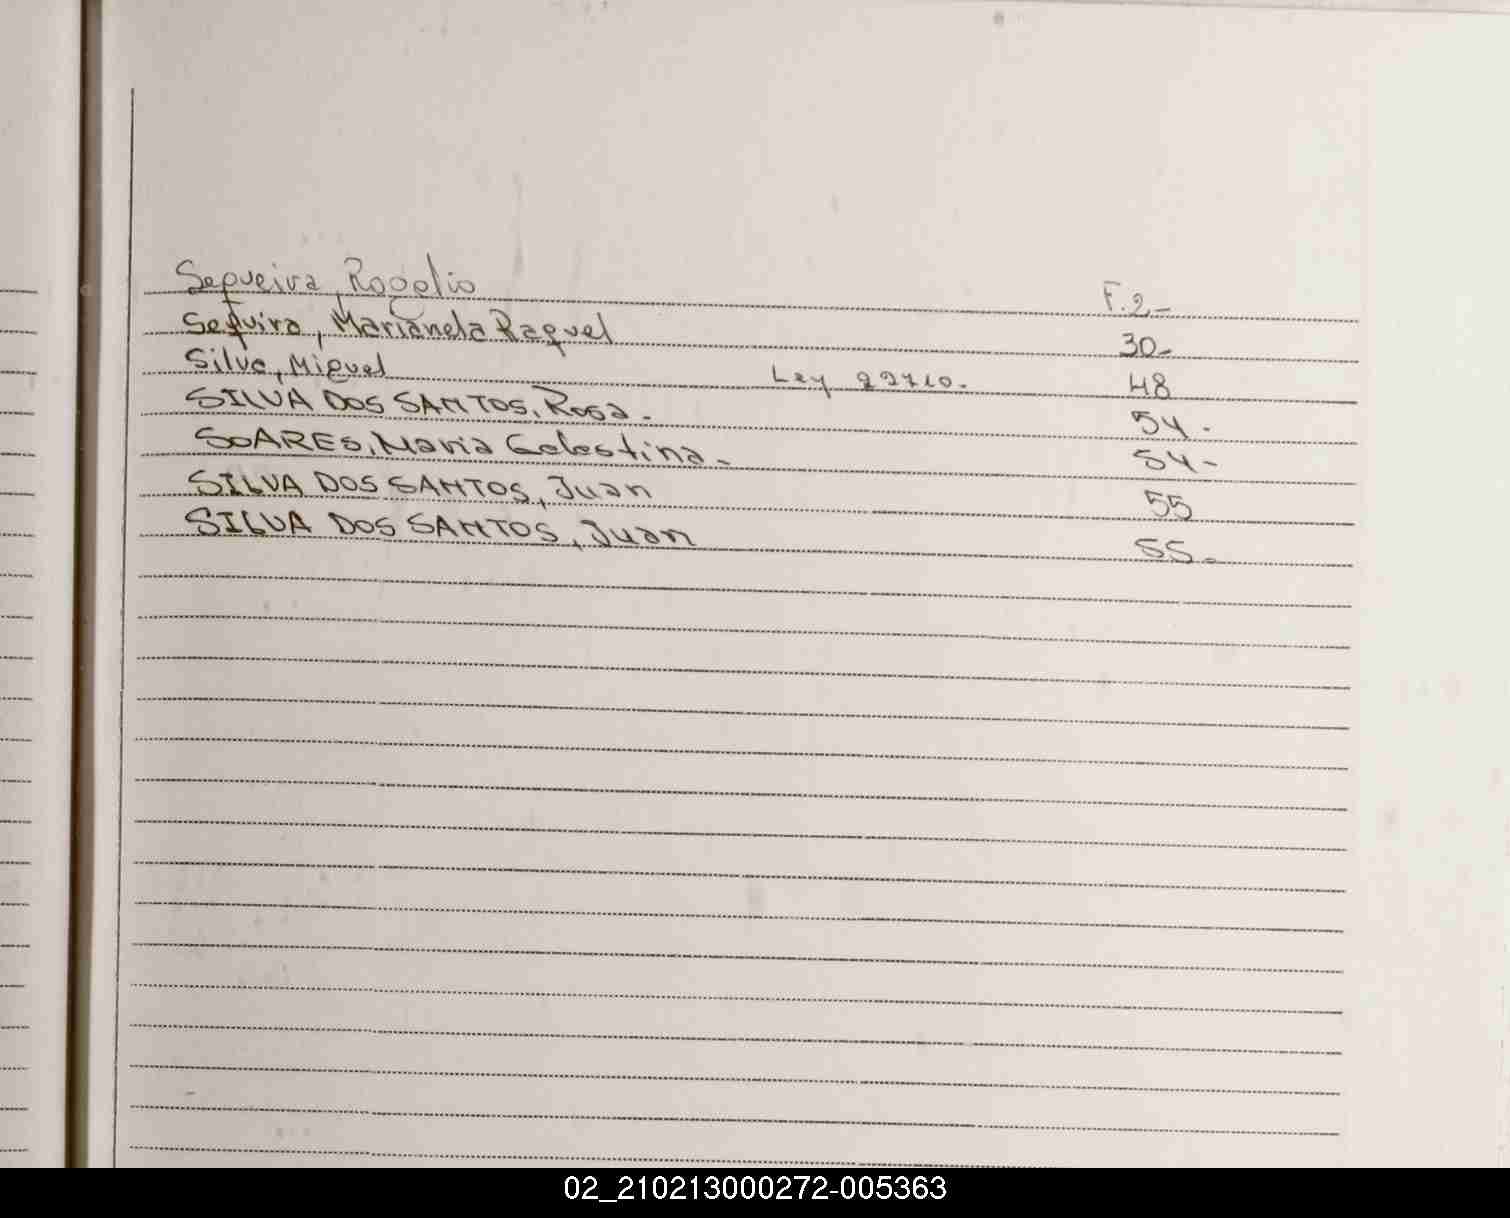 Sequeira, Rogelio F.2.-
Sequira, Marianela Raquel 30-
Silva, Miguel Ley 22710. 48
SILVA DOS SANTOS, Rosa. 54.
SOARES, Maria Celestina- 54-
SILVA DOS SANTOS, Juan 55
SILVA DOS SANTOS, Juan 55-
02_210213000272-005363